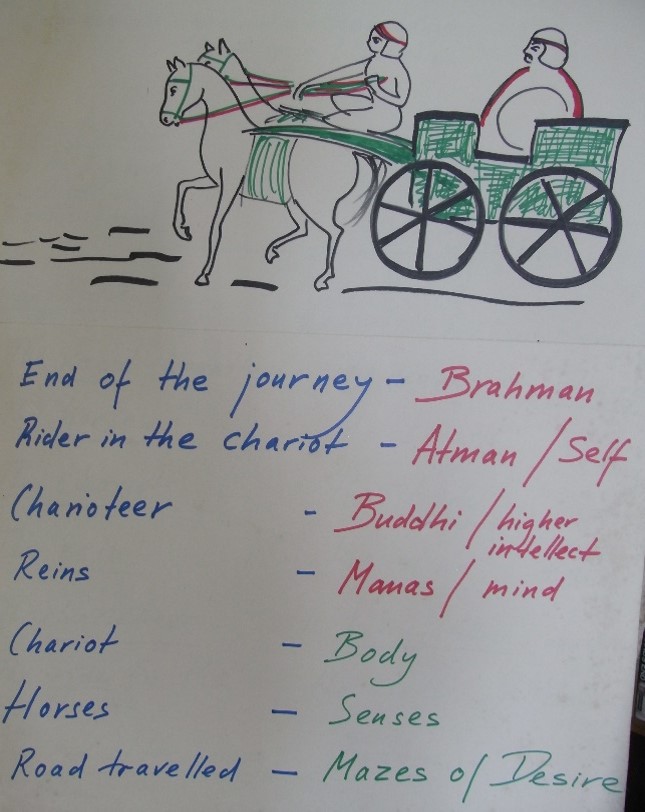 End of the journey - Brahman
Rider in the chariot - Atman / Self
Charioteer - Buddhi / higher intellect
Reins - Manas / mind
Chariot - Body
Horses - Senses
Road travelled - Mazes of Desire